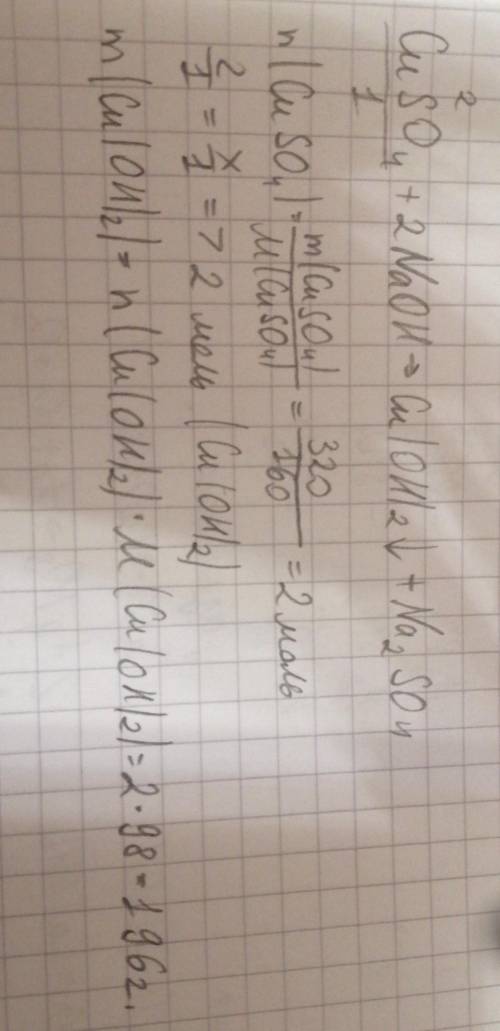 2
CuSO₄ + 2NaOH → Cu(OH)₂↓ + Na₂SO₄
1
n(CuSO₄) = m(CuSO₄)/M(CuSO₄) = 320/160 = 2 моль
2/1 = x/1 => 2 моль (Cu(OH)₂)
m(Cu(OH)₂) = n(Cu(OH)₂) · M(Cu(OH)₂) = 2 · 98 = 196г.